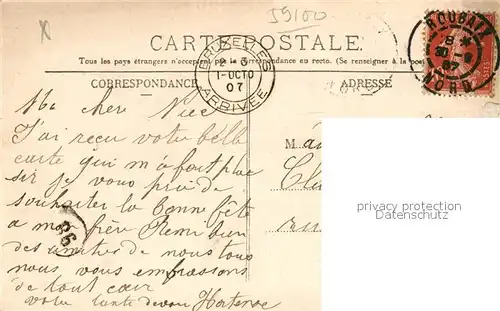 59100
CARTE POSTALE
Tous les pays étrangers n'acceptent pas la correspondance au recto. (Se renseigner à la poste)
CORRESPONDANCE
ADRESSE
BRUXELLES
1-OCTO
07
ARRIVÉE
ROUBAIX
NORD
Ma cher
J'ai reçu votre belle
carte qui m'a fait plai
sir je vous prie de
souhaiter la bonne fête
a mon frère Remi bien
des amitier de nous tous
nous vous embrassons
de tout cœur
votre tante Hortense
M.
privacy protection
Datenschutz